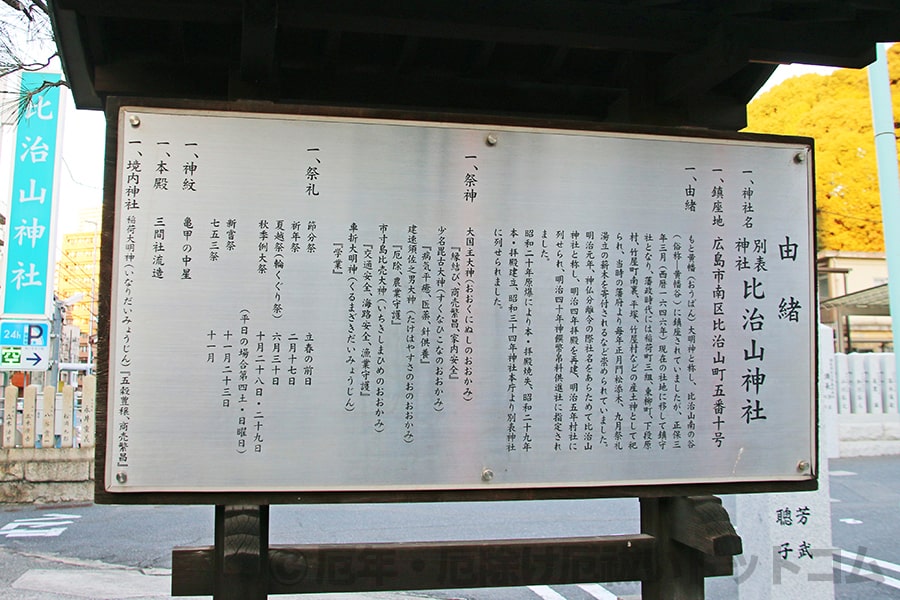 由緒
一、神社名 別表神社 比治山神社
一、鎮座地 広島市南区比治山町五番十号
一、由緒
もと黄幡（おうばん）大明神と称し、比治山南の谷
（俗称・黄幡谷）に鎮座されていましたが、正保三
年三月（西暦一六四六年）現在の社地に移して鎮守
社となり、藩政時代には稲荷町三組、東柳町、下段原
村、竹屋町南裏、平塚、竹屋村などの産土神として祀
られ、当時の藩府より毎年正月門松添木、九月祭礼
湯立の薪木を寄付されるなど崇められていました。
明治元年、神仏分離令の際社名をあらためて比治山
神社と称し、明治四年拝殿を再建、明治五年村社に
列せられ、明治四十年神饌幣帛料供進社に指定され
ました。
昭和二十年原爆により本・拝殿焼失、昭和二十九年
本・拝殿建立、昭和三十四年神社本庁より別表神社
に列せられました。
一、祭神
大国主大神（おおくにぬしのおおかみ）
『縁結び、商売繁昌、家内安全』
少名毘古大神（すくなひこなのおおかみ）
『病気平癒、医薬、針供養』
建速須佐之男大神（たけはやすさのおのおおかみ）
『厄除、農業守護』
市寸島比売大神（いちきしまひめのおおかみ）
『交通安全、海路安全、漁業守護』
車折大明神（くるまざきだいみょうじん）
『学業』
一、祭礼
節分祭 立春の前日
祈年祭 二月十七日
夏越祭（輪くぐり祭） 六月三十日
秋季例大祭 十月二十八日・二十九日
（平日の場合第四土・日曜日）
新嘗祭 十一月二十三日
七五三祭 十一月
一、神紋 亀甲の中星
一、本殿 三間社流造
一、境内神社 稲荷大明神（いなりだいみょうじん）『五穀豊穣、商売繁昌』
比治山神社
24h P
芳武
聰子
©厄年・厄除け厄祓いドットコム